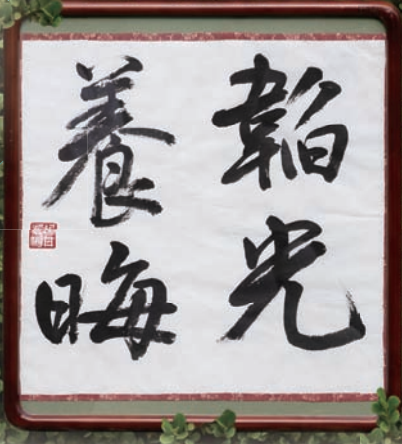 韜光
養晦